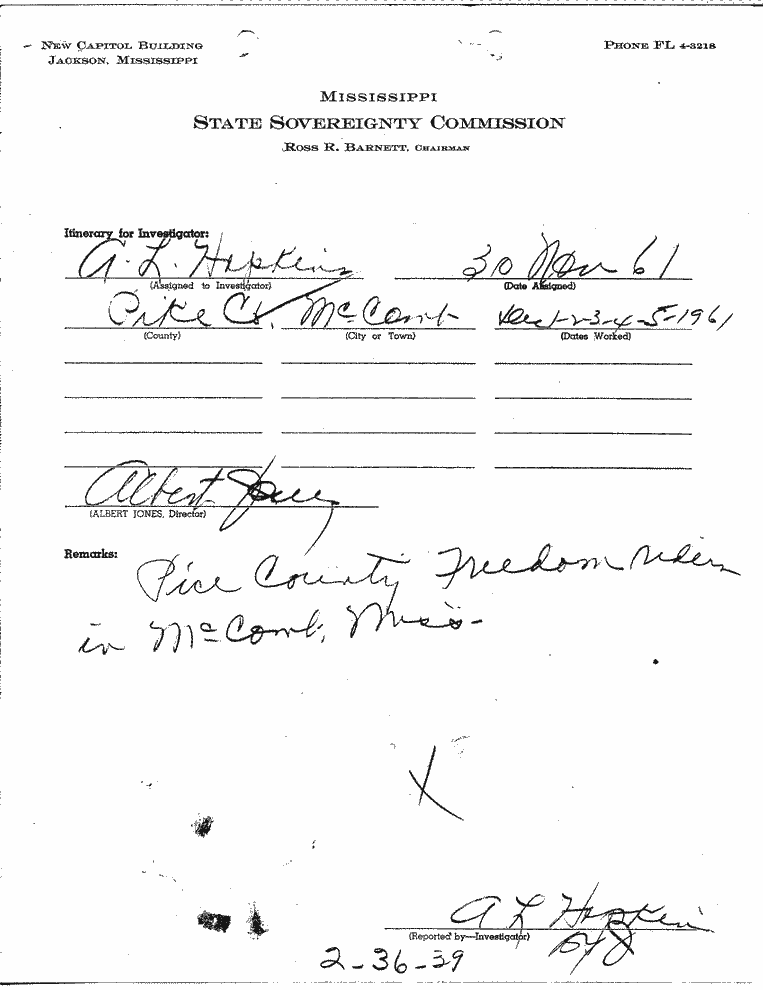 NEW CAPITOL BUILDING
JACKSON, MISSISSIPPI
PHONE FL 4-3218
MISSISSIPPI
STATE SOVEREIGNTY COMMISSION
ROSS R. BARNETT, CHAIRMAN
Itinerary for Investigator:
A. L. Hopkins 30 Nov 61
(Assigned to Investigator) (Date Assigned)
Pike Co. McComb Dec 1-2-3-4-5-1961
(County) (City or Town) (Dates Worked)
Albert Jones
(ALBERT JONES, Director)
Remarks:
Pice County Freedom riders
in McComb, Miss-
X
A L Hopkins
(Reported by—Investigator)
2-36-29